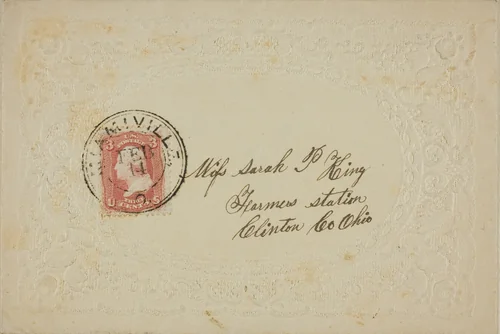 MIAMIVILLE
FEB
14
U S
Miſs Sarah P King
Farmers station
Clinton Co Ohio